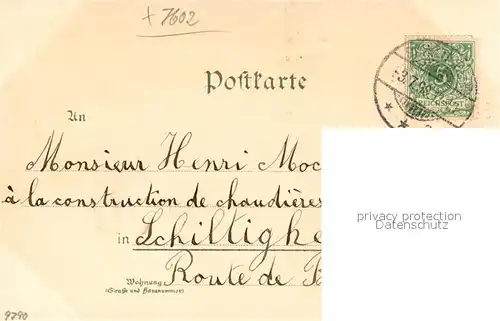 + 7602
Postkarte
5
REICHSPOST
An
Monsieur Henri Moc
à la construction de chaudières
privacy protection
Datenschutz
in Schiltighe
Wohnung
Route de
(Straße und Hausnummer)
9790